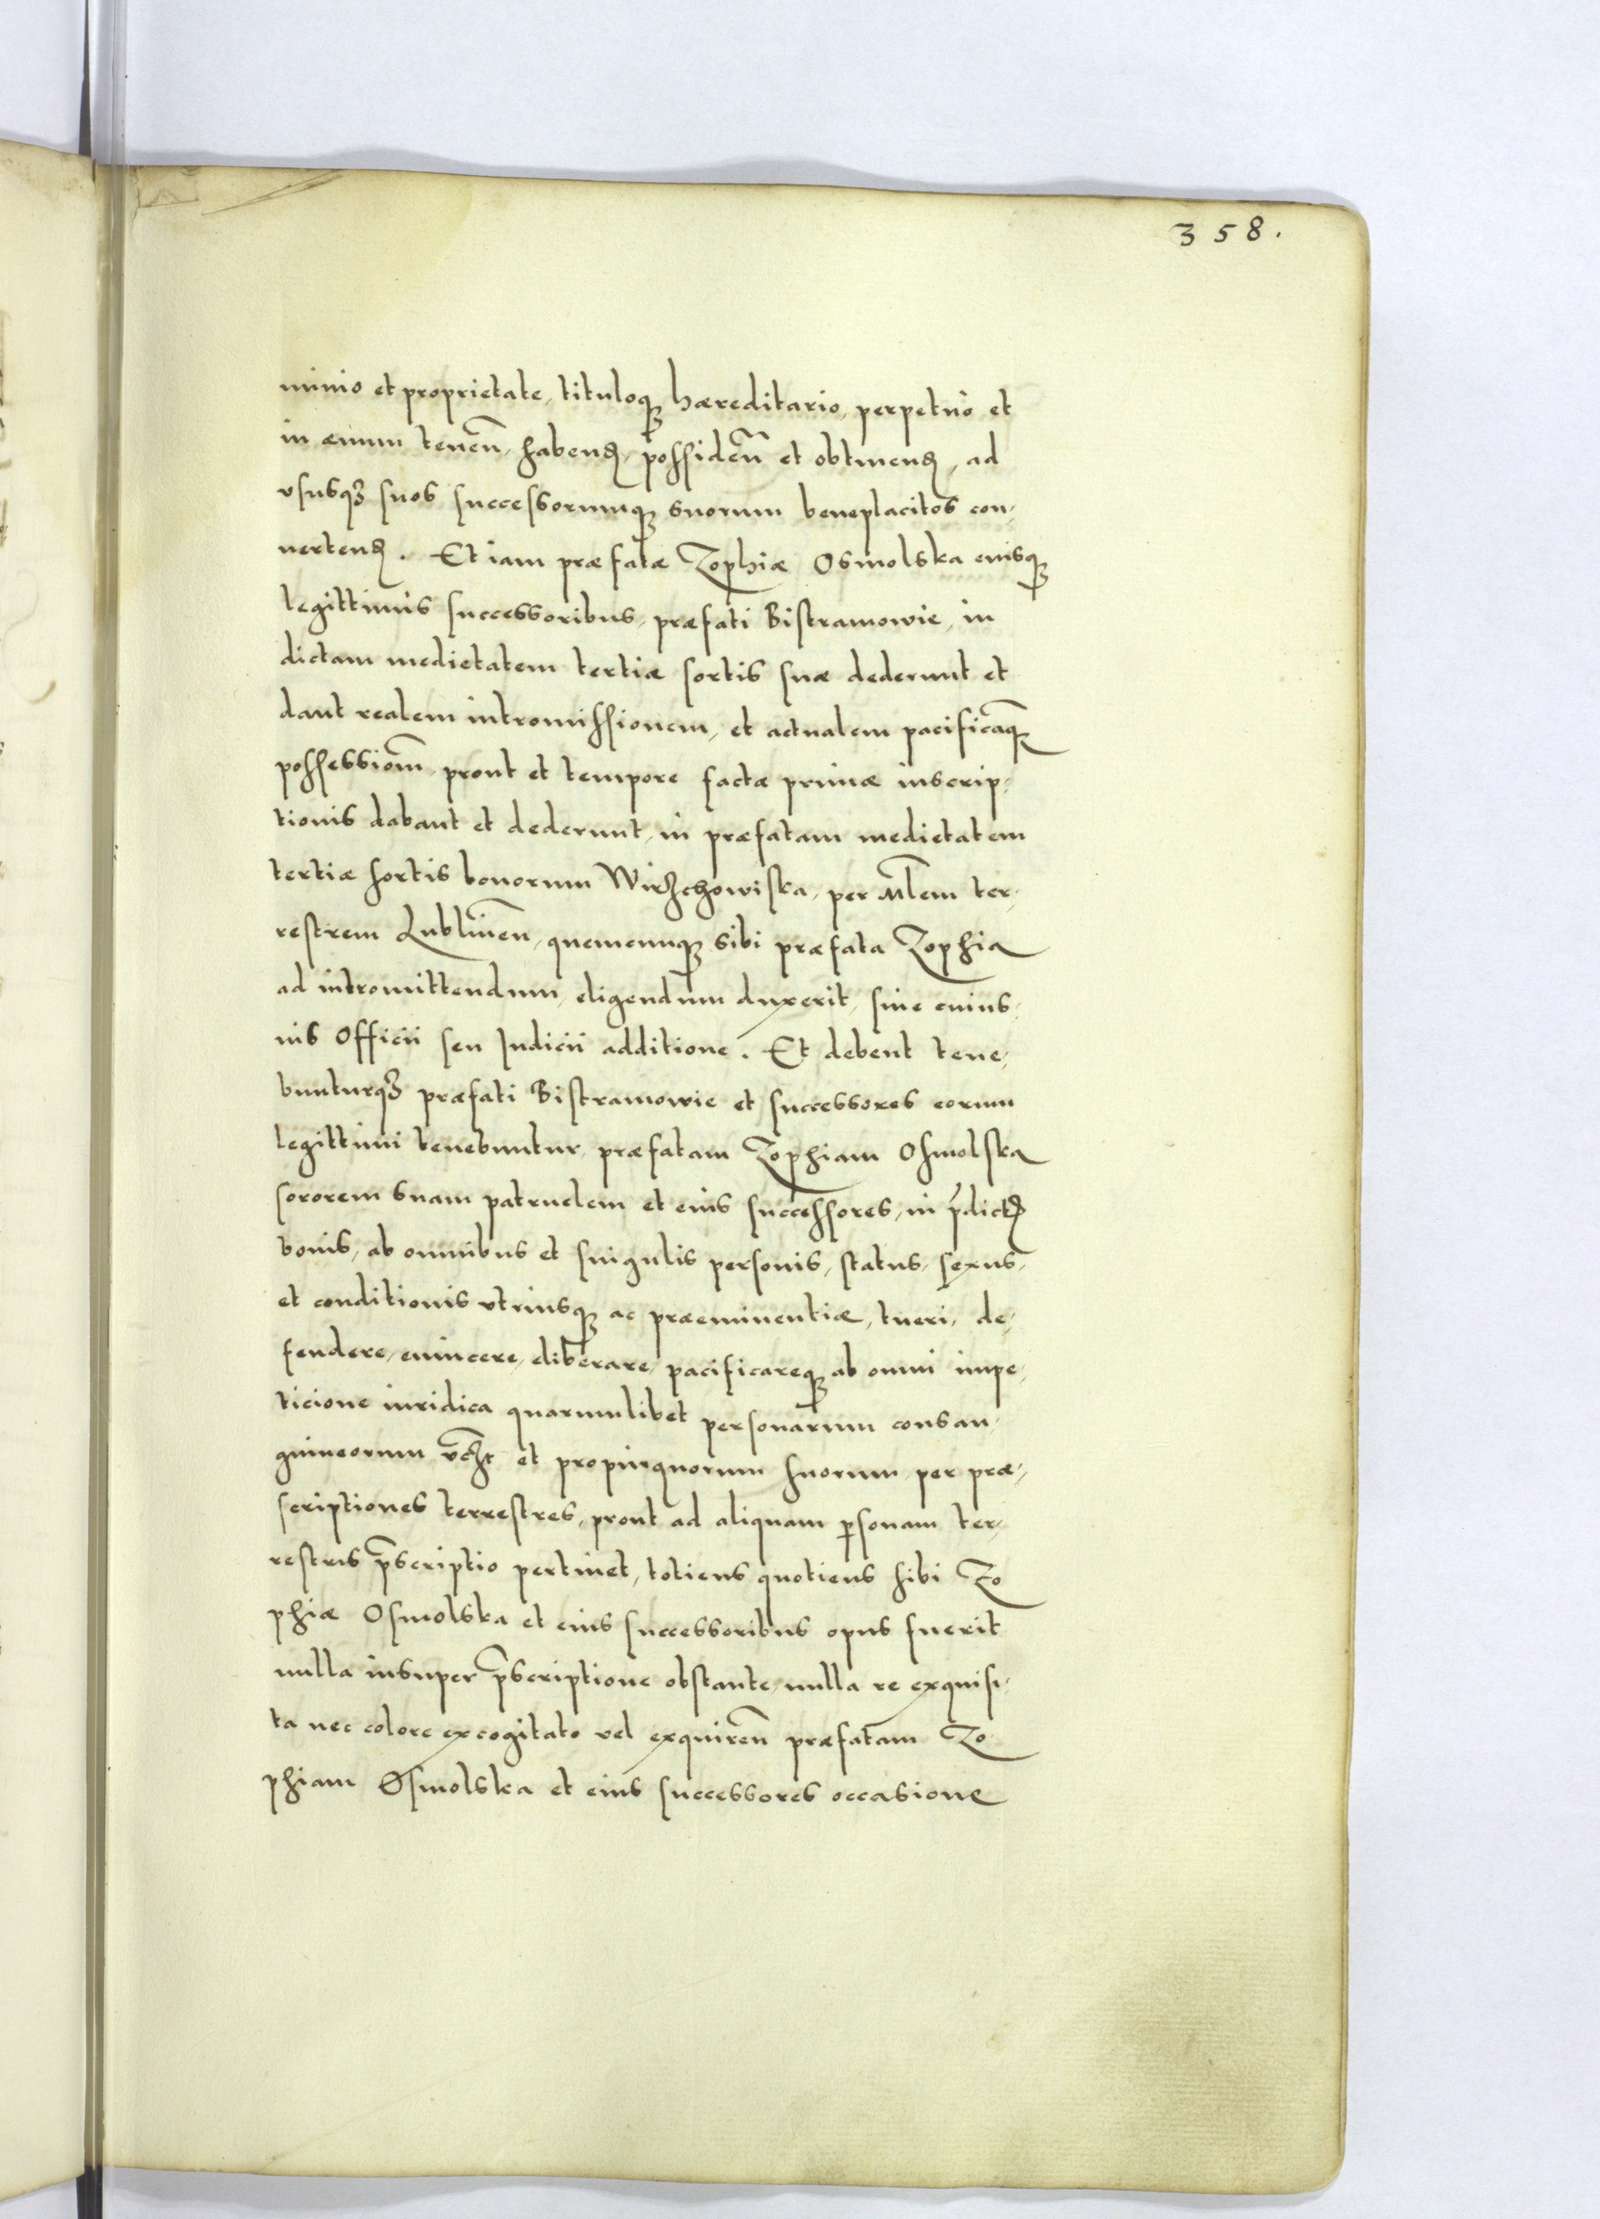 358.
minio et proprietate, tituloq₃ hæreditario, perpetuò et
in æuum tenen̄, habenđ, possiden̄ et obtinenđ, ad
vsusq₃ suos successorumq₃ suorum beneplacitos con-
uertenđ. Et iam præfatæ Zophiæ Osmolska eiusq₃
legittimis successoribus, præfati Bistramowie, in
dictam medietatem tertiæ sortis suæ dederunt et
dant realem intromissionem, et actualem pacificāq₃
possessiōm, prout et tempore factæ primæ inscrip-
tionis dabant et dederunt, in præfatam medietatem
tertiæ sortis bonorum Wirzchowiska, per Ml̄em ter-
restrem Lublinen̄, quemcunq₃ sibi præfata Zophia
ad intromittendum, eligendum duxerit, siue cuius-
uis Officii seu Judicii additione. Et debent tene-
bunturq₃ præfati Bistramowie et successores eorum
legittimi tenebuntur, præfatam Zophiam Osmolska
sororem suam patruelem et eius successores, in p̄dictꝭ
bonis, ab omnibus et singulis personis, status, sexus,
et conditionis vtriusq₃ ac præeminentiæ, tueri, de-
fendere, euincere, elib̄erare, pacificareq₃ ab omni impe-
ticione iuridica quarumlibet personarum consan-
guineorum et propinquorum suorum, per præ-
scriptiones terrestres, prout ad aliquam ꝑsonam ter-
restris p̄scriptio pertinet, totiens quotiens sibi Zo
phiæ Osmolska et eius successoribus opus fuerit
nulla insuper p̄scriptione obstante, nulla re exquisi-
ta nec colore excogitato vel exquiren̄ præfatam Zo
phiam Osmolska et eius successores occasione